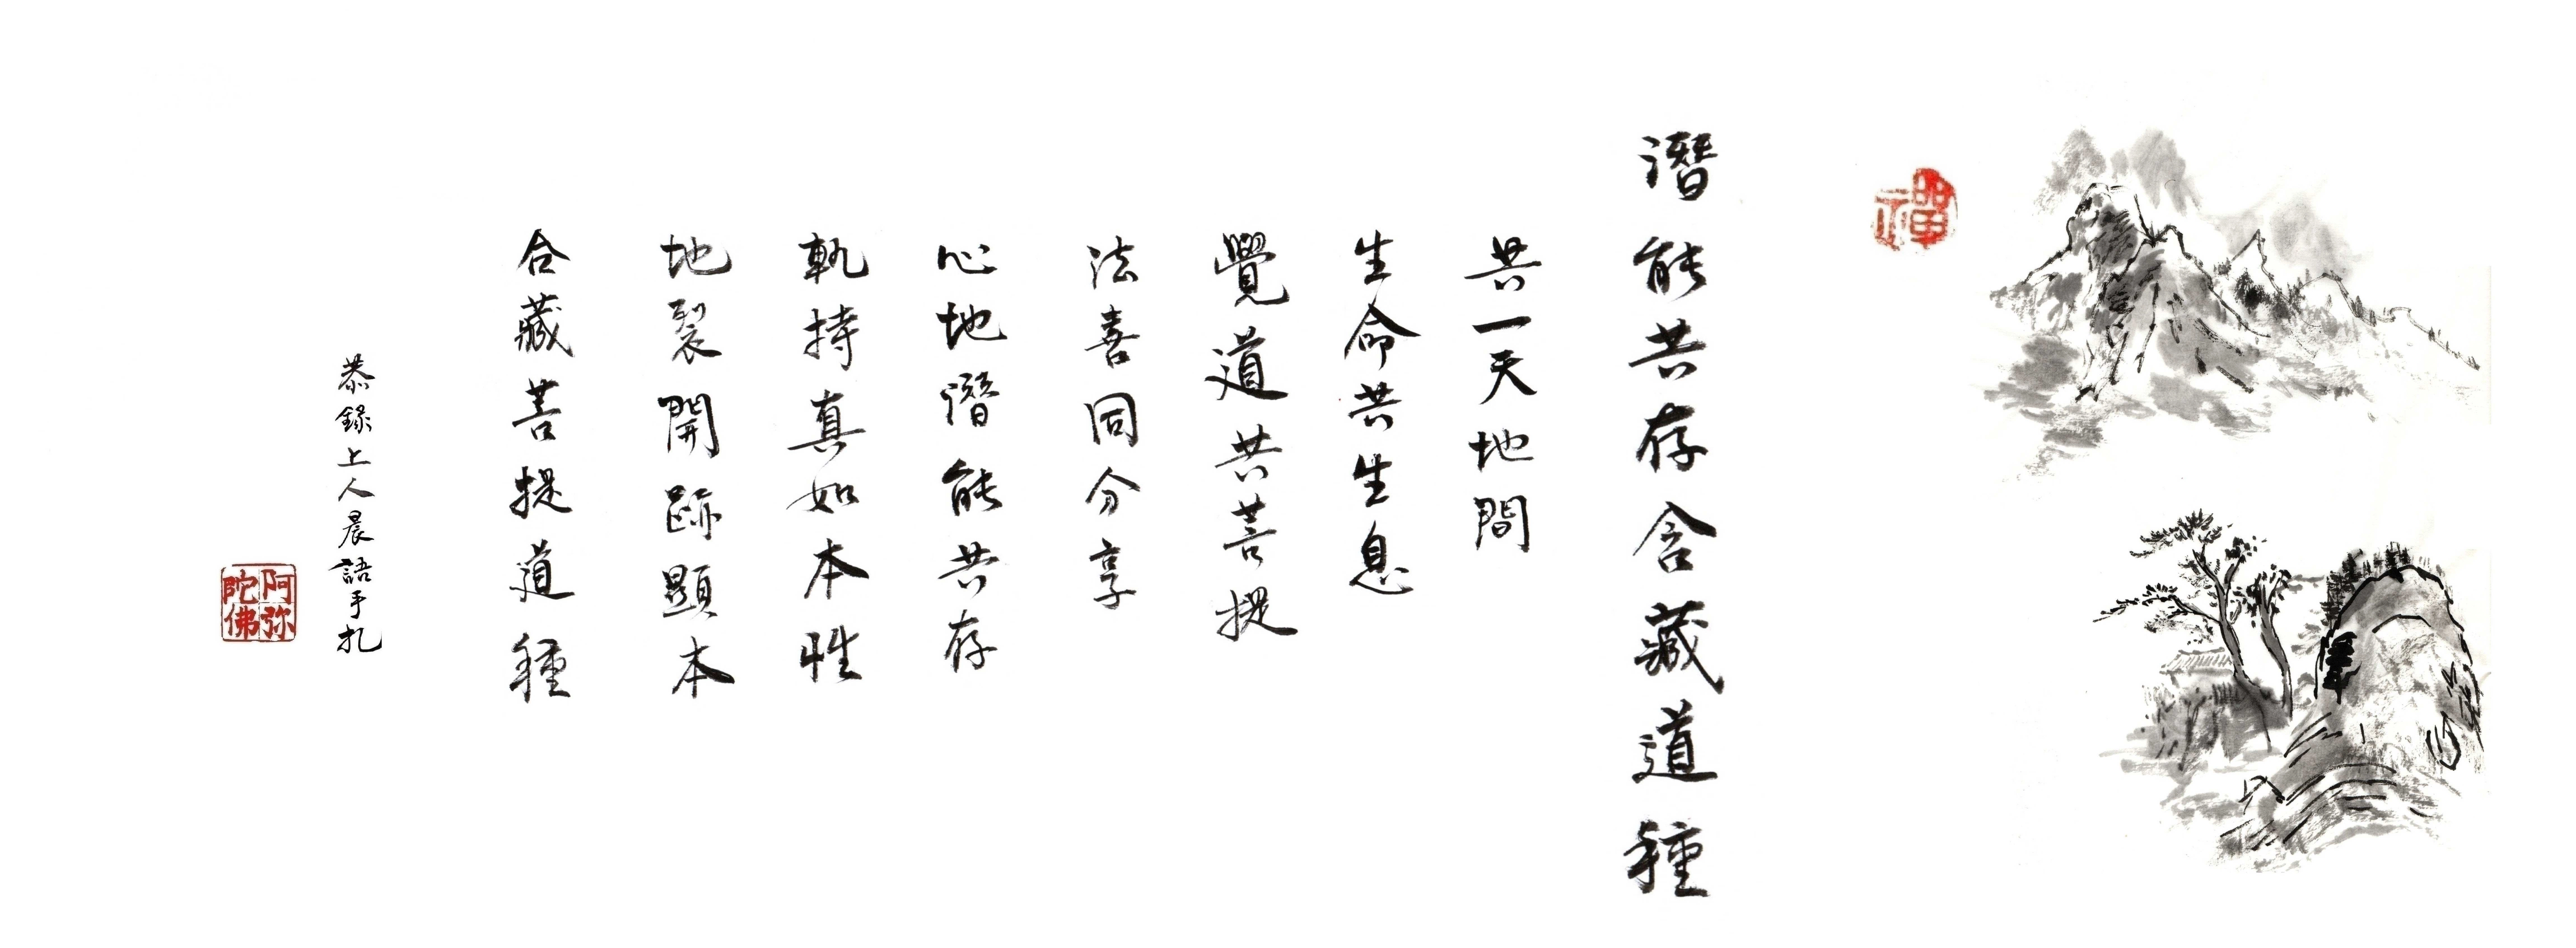 禪
潛能共存含藏道種
共一天地間
生命共生息
覺道共菩提
法喜同分享
心地潛能共存
執持真如本性
地裂開跡顯本
合藏菩提道種
恭錄上人晨語手扎
阿弥
陀佛